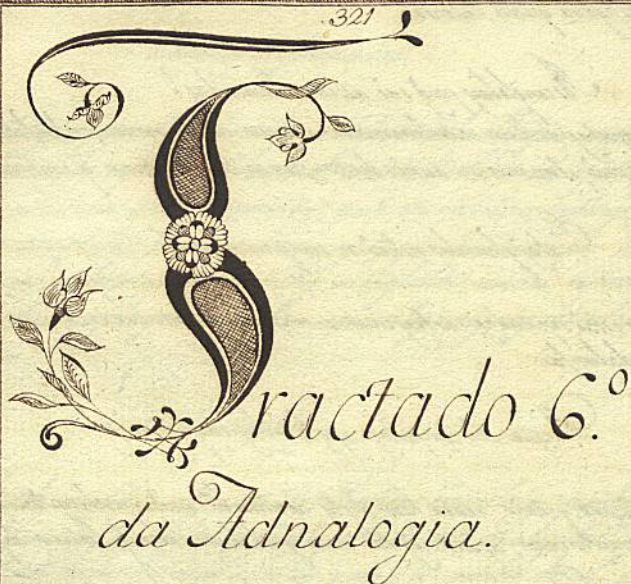 321
Tractado 6.º
da Adnalogia.